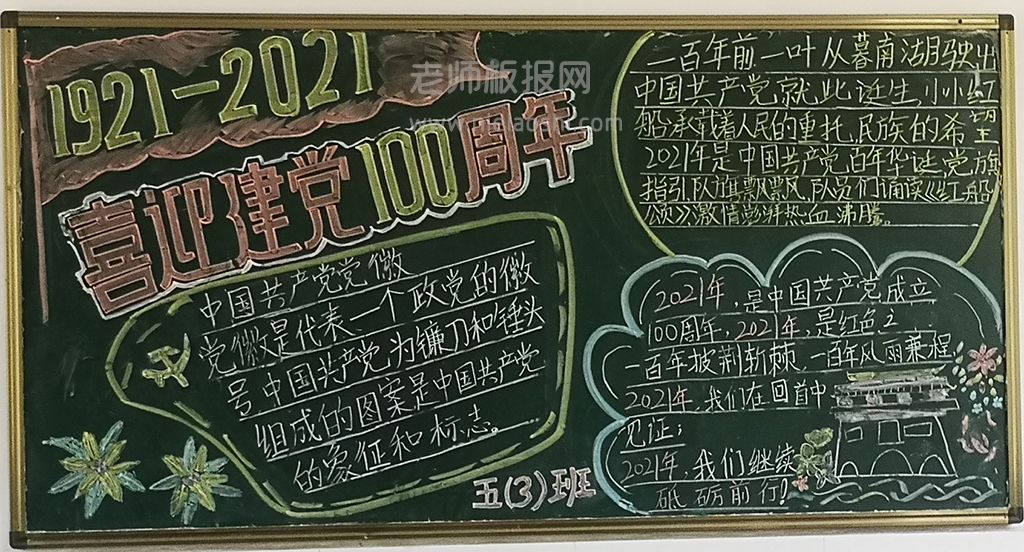 1921-2021
喜迎建党100周年
中国共产党党徽
党徽是代表一个政党的徽
号中国共产党为镰刀和锤头
组成的图案是中国共产党
的象征和标志。
五(3)班
一百年前一叶从暮南湖驶出
中国共产党就此诞生,小小红
船承载着人民的重托,民族的希望
2021年是中国共产党百年华诞,党旗
指引队旗飘飘,队员们诵读《红船
颂》激情澎湃热血沸腾。
2021年,是中国共产党成立
100周年,2021年,是红色之
一百年披荆斩棘,一百年风雨兼程
2021年,我们在回首中
见证;
2021年,我们继续
砥砺前行!
老师板报网